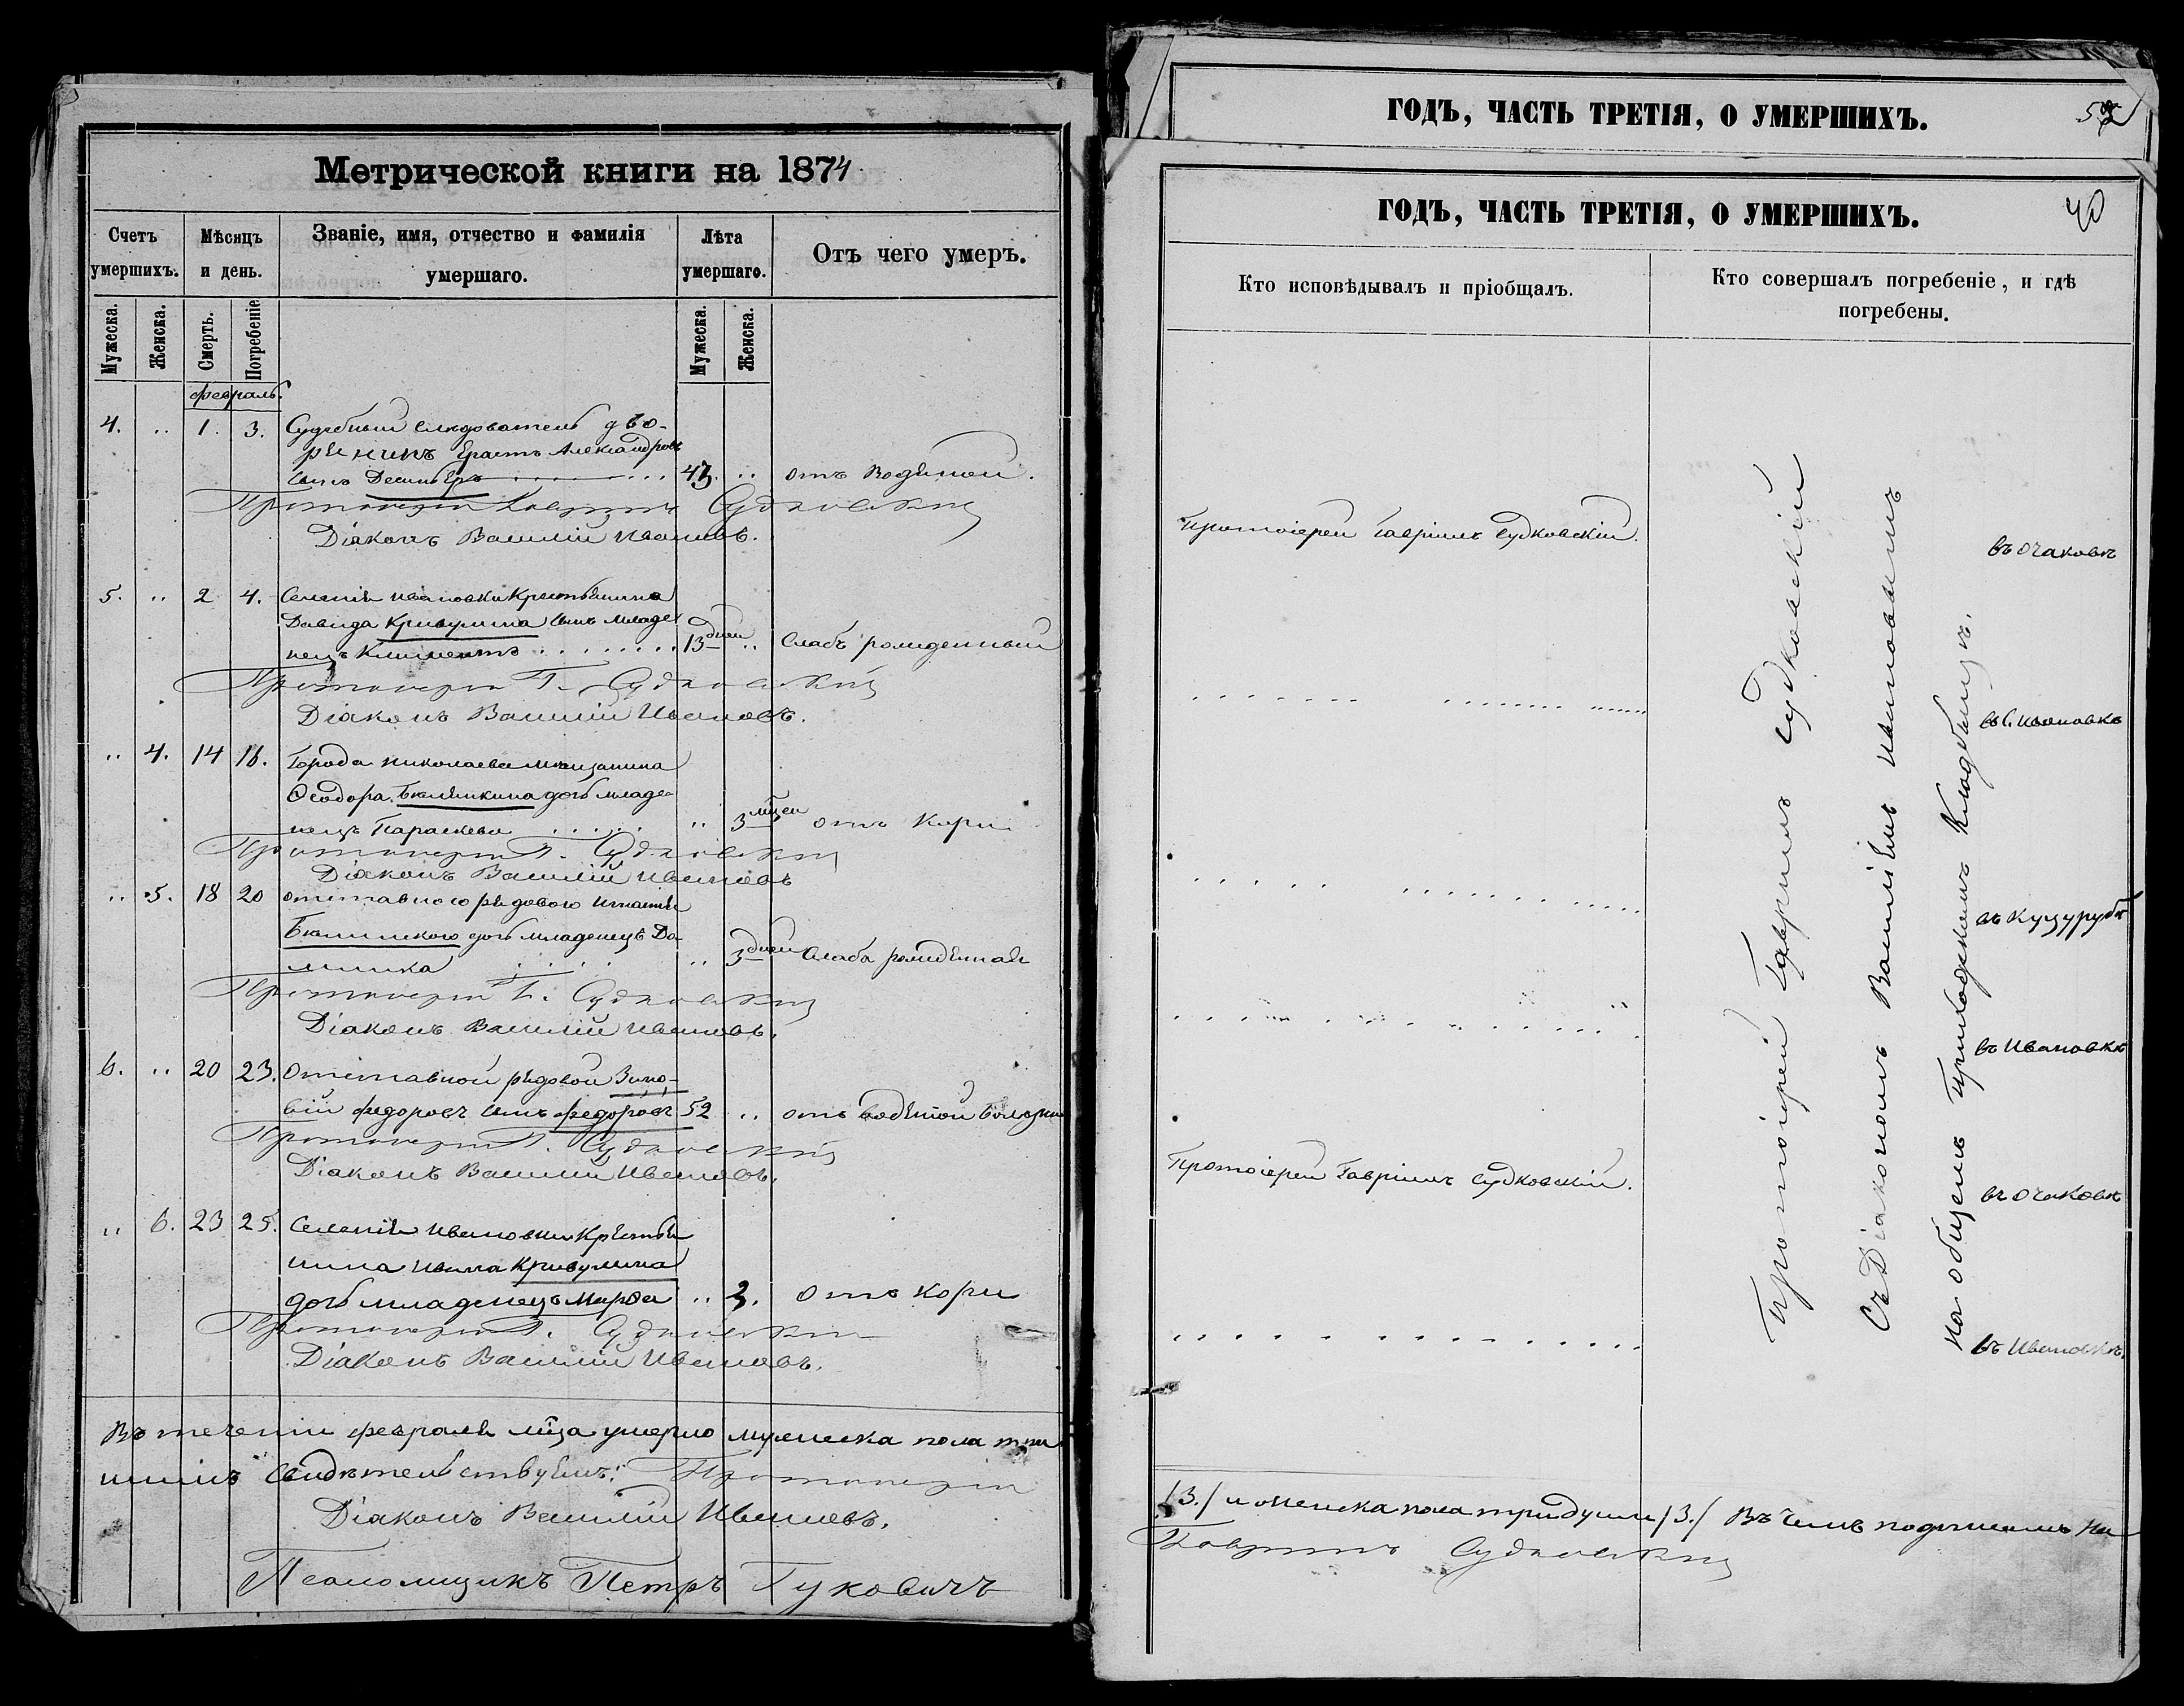 Метрической книги на 1874
Счетъ умершихъ.
Мѣсяцъ и день.
Званіе, имя, отчество и фамилія умершаго.
Лѣта умершаго.
Отъ чего умеръ.
Мужеска.
Женска.
Смерть.
Погребеніе
Мужеска.
Женска.
февраль.
4. .. 1. 3. Судебный слѣдователь дво-
рянинъ Ерастъ Александровъ
сынъ 43. .. отъ водяной.
Протоіерей Гавріилъ Судковскій
Діаконъ Василій Ивановъ.
5. .. 2 4. Селенія Ивановки крестьянина
Давида Кривулина сынъ младе
нецъ Климентъ 13 дней .. Слабъ рожденный
Протоіерей Г. Судковскій
Діаконъ Василій Ивановъ.
.. 4. 14 16. Города Николаева мѣщанина
Ѳеодора дочь младе-
нецъ Параскева .. 3 мѣсц отъ Кори
Протоіерей Г. Судковскій
Діаконъ Василій Ивановъ
.. 5. 18 20 отставного рядового Игнатія
дочь младенецъ До-
мника .. 3 дней Слаба рожденная
Протоіерей Г. Судковскій
Діаконъ Василій Ивановъ.
6. .. 20 23. Отставной рядовой Зино-
вій Федоровъ сынъ Федоровъ 52 .. отъ водяной болезни
Протоіерей Г. Судковскій
Діаконъ Василій Ивановъ.
.. 6. 23 25. Селенія Ивановки крестья
нина Ивана Кривулина
дочь младенецъ Марфа .. 3. отъ кори
Протоіерей Г. Судковскій
Діаконъ Василій Ивановъ.
Въ теченіи февраля мца умерло мужеска пола три
шимъ свидѣтельствуемъ: Протоіерей
Діаконъ Василій Ивановъ.
Псаломщикъ Петръ Гуковичъ
ГОДЪ, ЧАСТЬ ТРЕТІЯ, О УМЕРШИХЪ.
ГОДЪ, ЧАСТЬ ТРЕТІЯ, О УМЕРШИХЪ.
40
Кто исповѣдывалъ и пріобщалъ.
Кто совершалъ погребеніе, и гдѣ погребены.
Протоіерей Гавріилъ Судковскій.
въ Очаковѣ
въ с. Ивановкѣ
въ Куцурубѣ
въ Ивановкѣ
Протоіерей Гавріилъ Судковскій.
въ Очаковѣ
въ Ивановкѣ.
Протоіерей Гавріилъ Судковскій
съ Діакономъ Василіемъ Ивановымъ
на общемъ приходскомъ кладбищѣ.
/3./ и женска пола три души /3./ Въ чемъ подписомъ на
Гавріилъ Судковскій